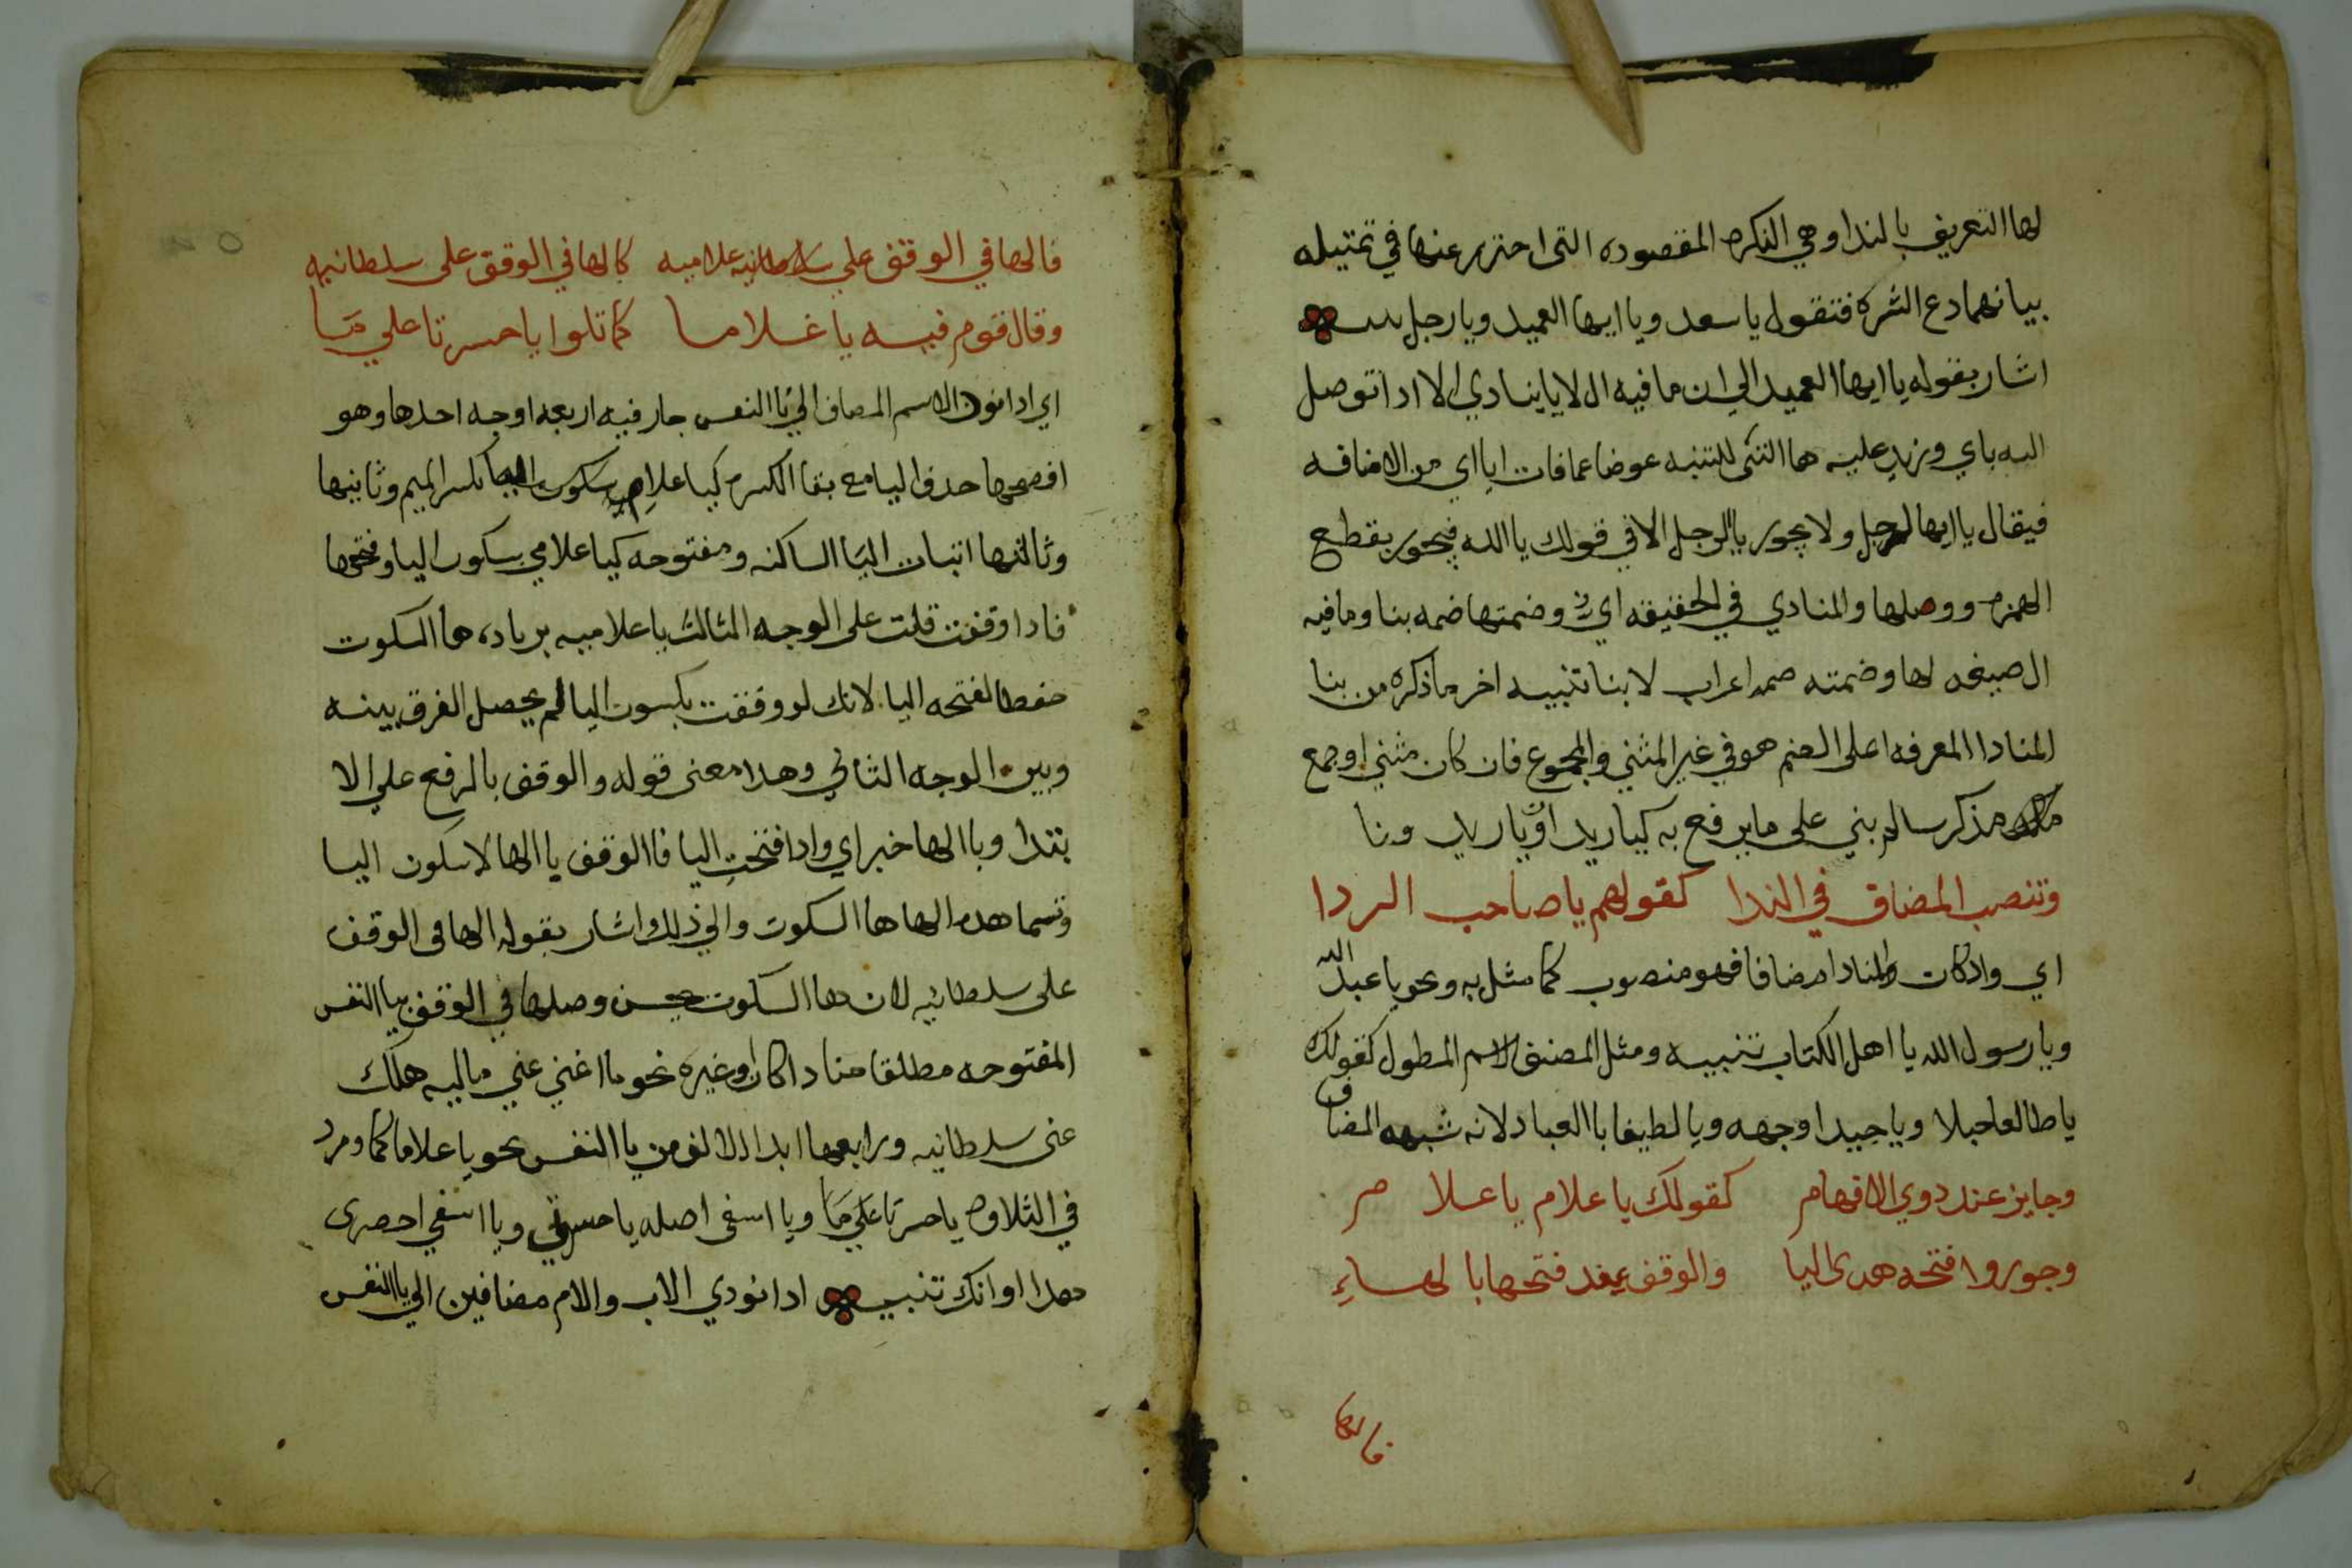 لها التعريف بالندا وهي النكره المقصوده التى احترز عنها في تمثيله
بيا نهما دع الشره فتقول يا سعد ويا ايها العميد ويا رجل
اشار بقوله يا ايها العميد الي ان ما فيه ال لا ينادي الا اذا توصل
اليه باي وزيد عليه ها التى للتنبه عوضا عما فات اياي من الاضافه
فيقال يا ايها الرجل ولا يجوز يا الرجل الا في قولك يا الله فيجوز بقطع
الهمزه ووصلها والمنادي في الحقيقه اي وضمتها ضمه بنا وما فيه
ال صيغه لها وضمته ضمه اعراب لا بنا تنبيه اخر ما ذكره من بنا
المنادا المعرفه اعلى الضم هو في غير المثني والمجموع فان كان مثني اوجمع
مذكر سالم بني على ما يرفع به كيا زيدا ويا زيد ونا
وتنصب المضاف في الندا كقولهم يا صاحب الردا
اي واد كان المنادا مضافا فهو منصوب كما مثل به ونحو يا عبد الله
ويا رسول الله يا اهل الكتاب تنبيه ومثل المضف الاسم المطول كقولك
يا طالعا جبلا ويا جيدا وجهه ويا لطيفا با العباد لانه شبهه المضاف
وجايز عند دوي الافهام كقولك يا علام يا علا مر
وجوزوا فتحه هدى اليا والوقف عند فتحها با لهاءِ
فالها
فالها في الوقف علي علاميه كالها في الوقف على سلطانيه
وقال قوم فيه يا غلاما كما تلوا يا حسرتا علي مَا
اي ادا نودي الاسم المضاف الي يا النفس جاز فيه اربعه اوجه احدها وهو
افصحها حدف اليا مع بقا الكسره كيا علامِ بكسر الميم وثانيها
وثالثها اثبات اليَا الساكنه ومفتوحه كيا علامي بسكون اليا وفتحها
فادا وقفت قلت على الوجه الثالث يا علاميه بزياده ها السكوت
حفظا لفتحه اليا لانك لو وقفت بكسوت اليا لم يحصل الفرق بينه
وبين الوجه الثاني وهدا معنى قوله والوقف بالرفع علي الا
بتدا وبا الها خبر اي وادا فتحت اليا فالوقف با الها لا سكون اليا
وتسما هده الها ها السكوت والي ذلك اشار بقوله الها فى الوقف
على سلطانيه لان ها السكوت يحسن وصلها في الوقف بيا النفس
المفتوحه مطلقا منادا كان وغيره نحو ما اغني عني ماليه هلك
عنى سلطانيه ورابعها ابدال الالف من يا النفس نحو يا علاما كما ومرد
في التلاوه يا حسرتا علي مَا ويا اسفى اصله يا حسرتي ويا اسفي احصرى
هدا اوانك تنبيه ادا نودي الاب والام مضافين الي يا النفس